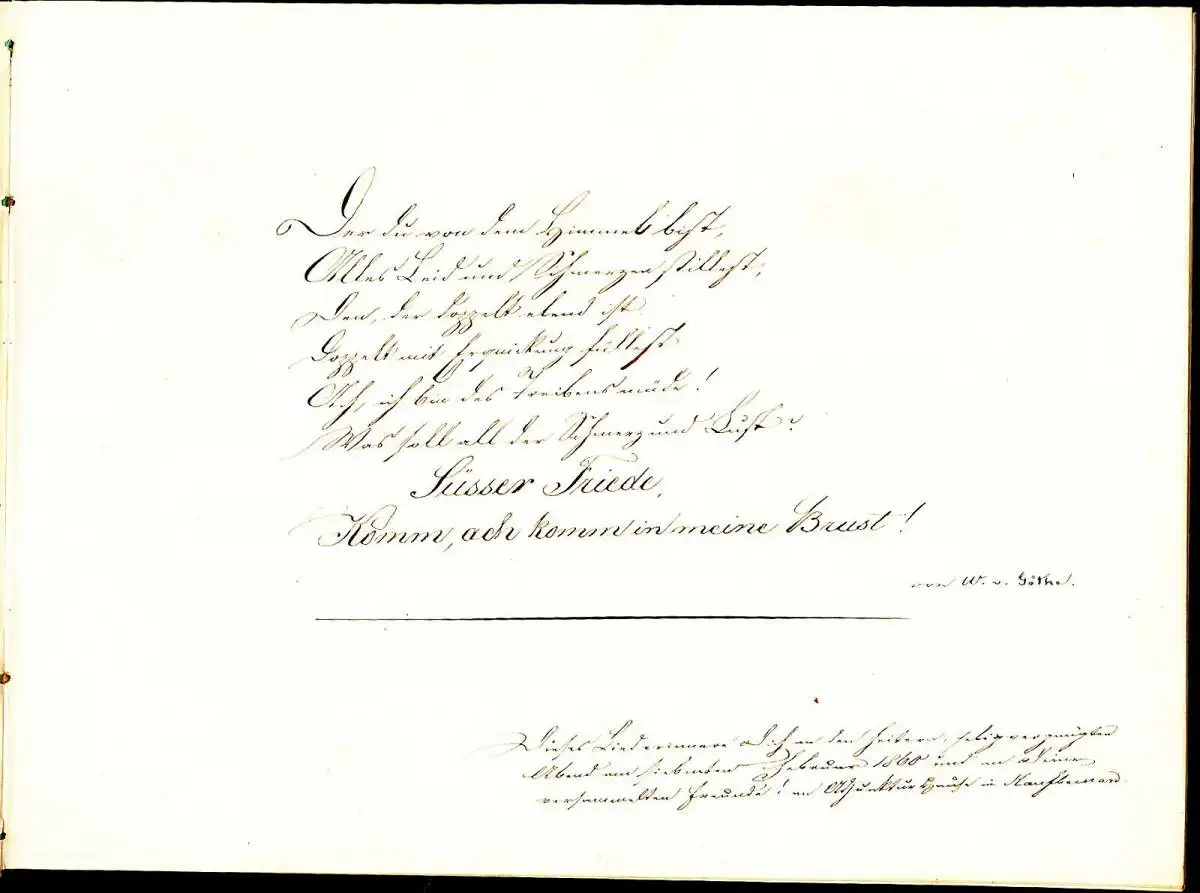 Der du von dem Himmel bist,
Alles Leid und Schmerzen stillest,
Den, der doppelt elend ist
Doppelt mit Erquickung füllest
Ach, ich bin des Treibens müde!
Was soll all der Schmerz und Lust?
Süsser Friede,
Komm, ach komm in meine Brust!
von W. v. Göthe.
Dieses Lied erinnere Dich an den heitern,
Abend am siebenten Februar 1860 und an Deine
versammelten Freunde! im Adjunktur Hause in